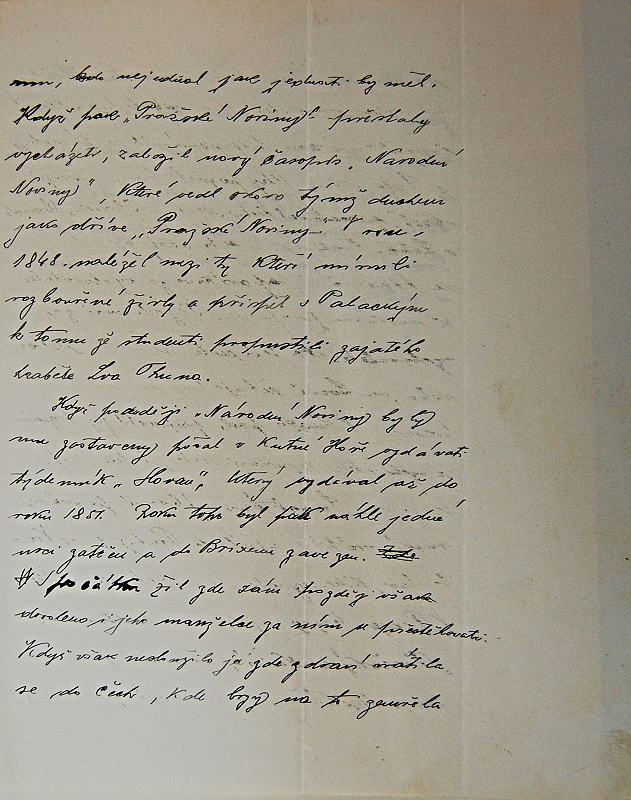 mu, kdo nejednal jak jednati by měl.
Když pak „Pražské Noviny" přestaly
vycházeti, založil nový časopis „Národní
Noviny", které vedl skoro týmž duchem
jako dříve „Pražské Noviny" V roce
1848. náležel mezi ty kteří mírnili
rozbouřené živly a přispěl s Palackým
k tomu že studenti propustili zajatého
hraběte Lva Thuna.
Když později „Národní Noviny byly
mu zastaveny počal v Kutné Hoře vydávati
týdenník „Slovan", který vydával až do
roku 1851. Roku toho byl pak náhle jedné
noci zatčen a do Brixenu zavezen.
S počátku žil zde sám později však
dovoleno i jeho manželce za ním se přestěhovati.
Když však nesloužilo jí zde zdraví vrátila
se do Čech, kde brzy na to zemřela